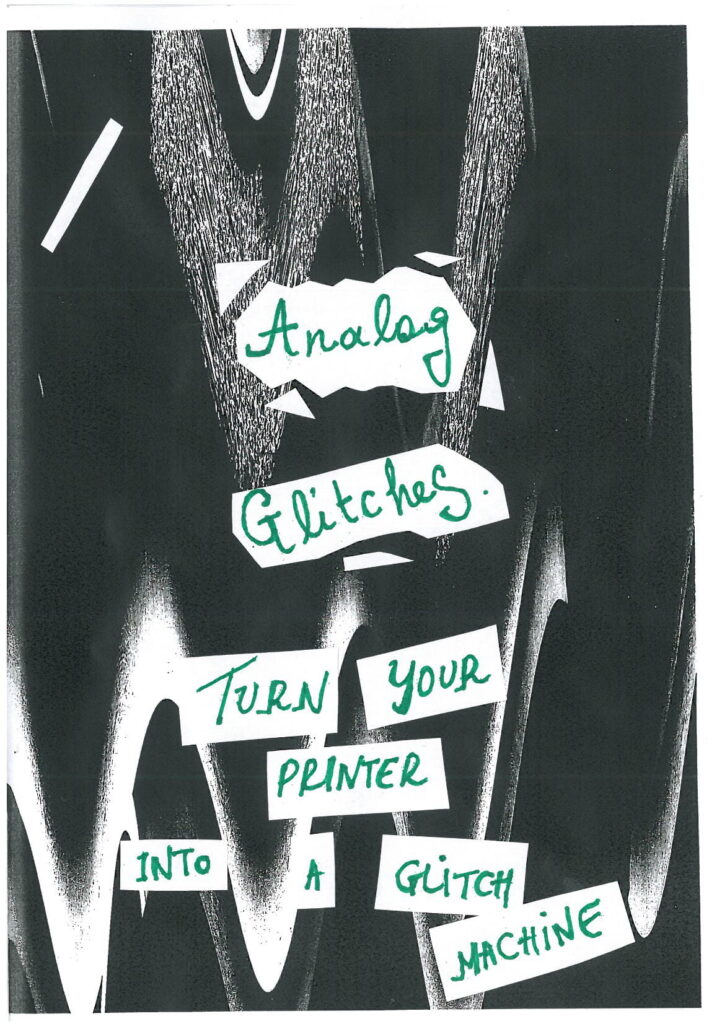 Analog
Glitches.
TURN YOUR
PRINTER
INTO A GLITCH
MACHINE